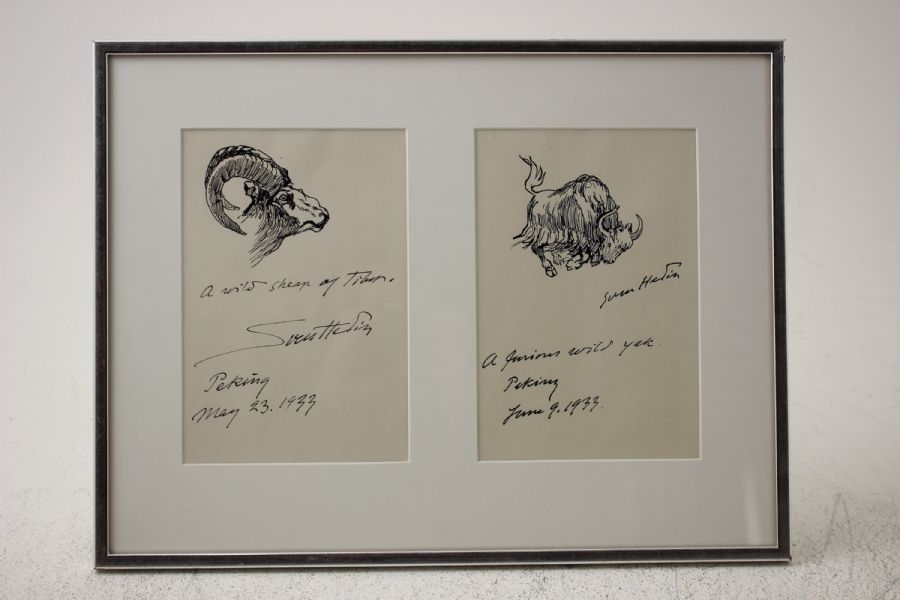 A wild sheap of Tibet.
Sven Hedin
Peking
May 23. 1933
Sven Hedin
A furious wild yak.
Peking
June 9. 1933.